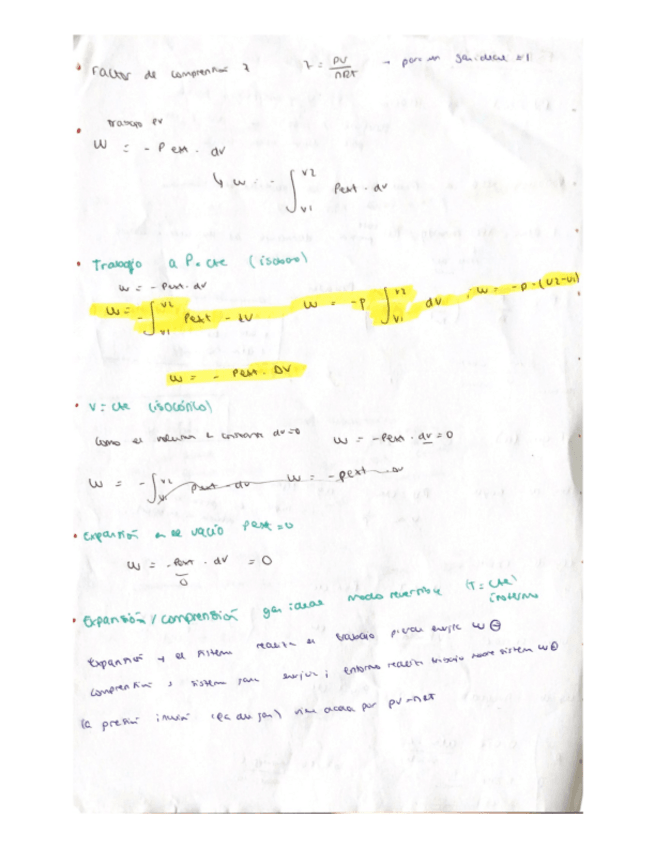 • Factor de comprensión z   z = PV / nRT → para un gas ideal = 1
• trabajo PV
W = - Pext · dV
↳ W = - ∫ V2 V1 Pext · dV
• Trabajo a P = cte (isobaro)
W = - Pext · dV
W = - ∫ V2 V1 Pext - dV   W = - P ∫ V2 V1 dV ; W = - P · (V2-V1)
W = - Pext · DV
• V = cte (isocórico)
Como el volumen es constante dV=0   W = - Pext · dV = 0
W = - ∫ V2 V1 Pext · dV   W = - Pext · DV
• Expansión en el vacío Pext = 0
W = - Pext · dV = 0
0
• Expansión / comprensión gas ideal modo reversible (T = cte) isotermo
Expansión → el sistema realiza el trabajo pierde energía W ⊖
comprensión → sistema gana energía ; entorno realiza trabajo sobre sistema W ⊕
la presión (la del gas) viene dada por PV = nRT